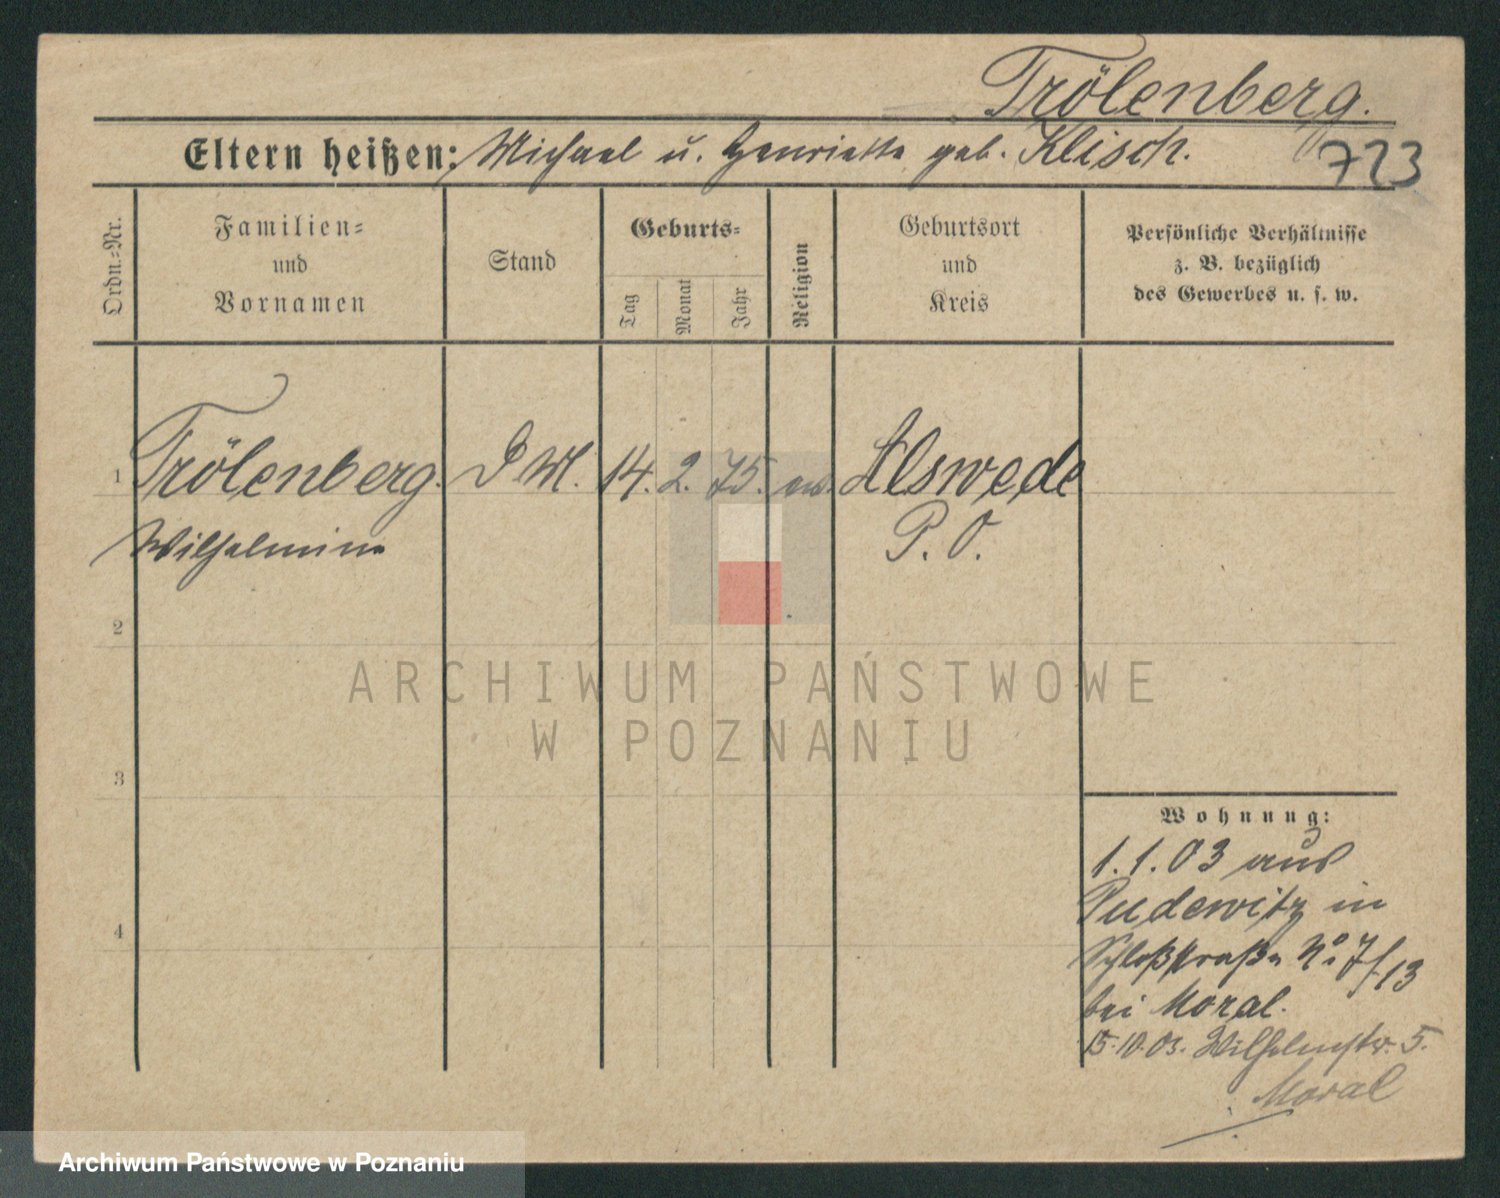 Trölenberg.
Eltern heißen: Michael u. Henriette geb. Klisch.
723
Ordn.-Nr.
Familien-
und
Vornamen
Stand
Geburts-
Tag
Monat
Jahr
Religion
Geburtsort
und
Kreis
Persönliche Verhältnisse
z. B. bezüglich
des Gewerbes u. s. w.
1 Trölenberg. D M. 14. 2. 75. ev. Alswede
Wilhelmine P. O.
2
3
4
Wohnung:
1.1.03 aus
Pudewitz in
Schloßstraße No 7/13
bei Moral.
15.10.03. Wilhelmstr. 5.
Moral
ARCHIWUM PAŃSTWOWE
W POZNANIU
Archiwum Państwowe w Poznaniu